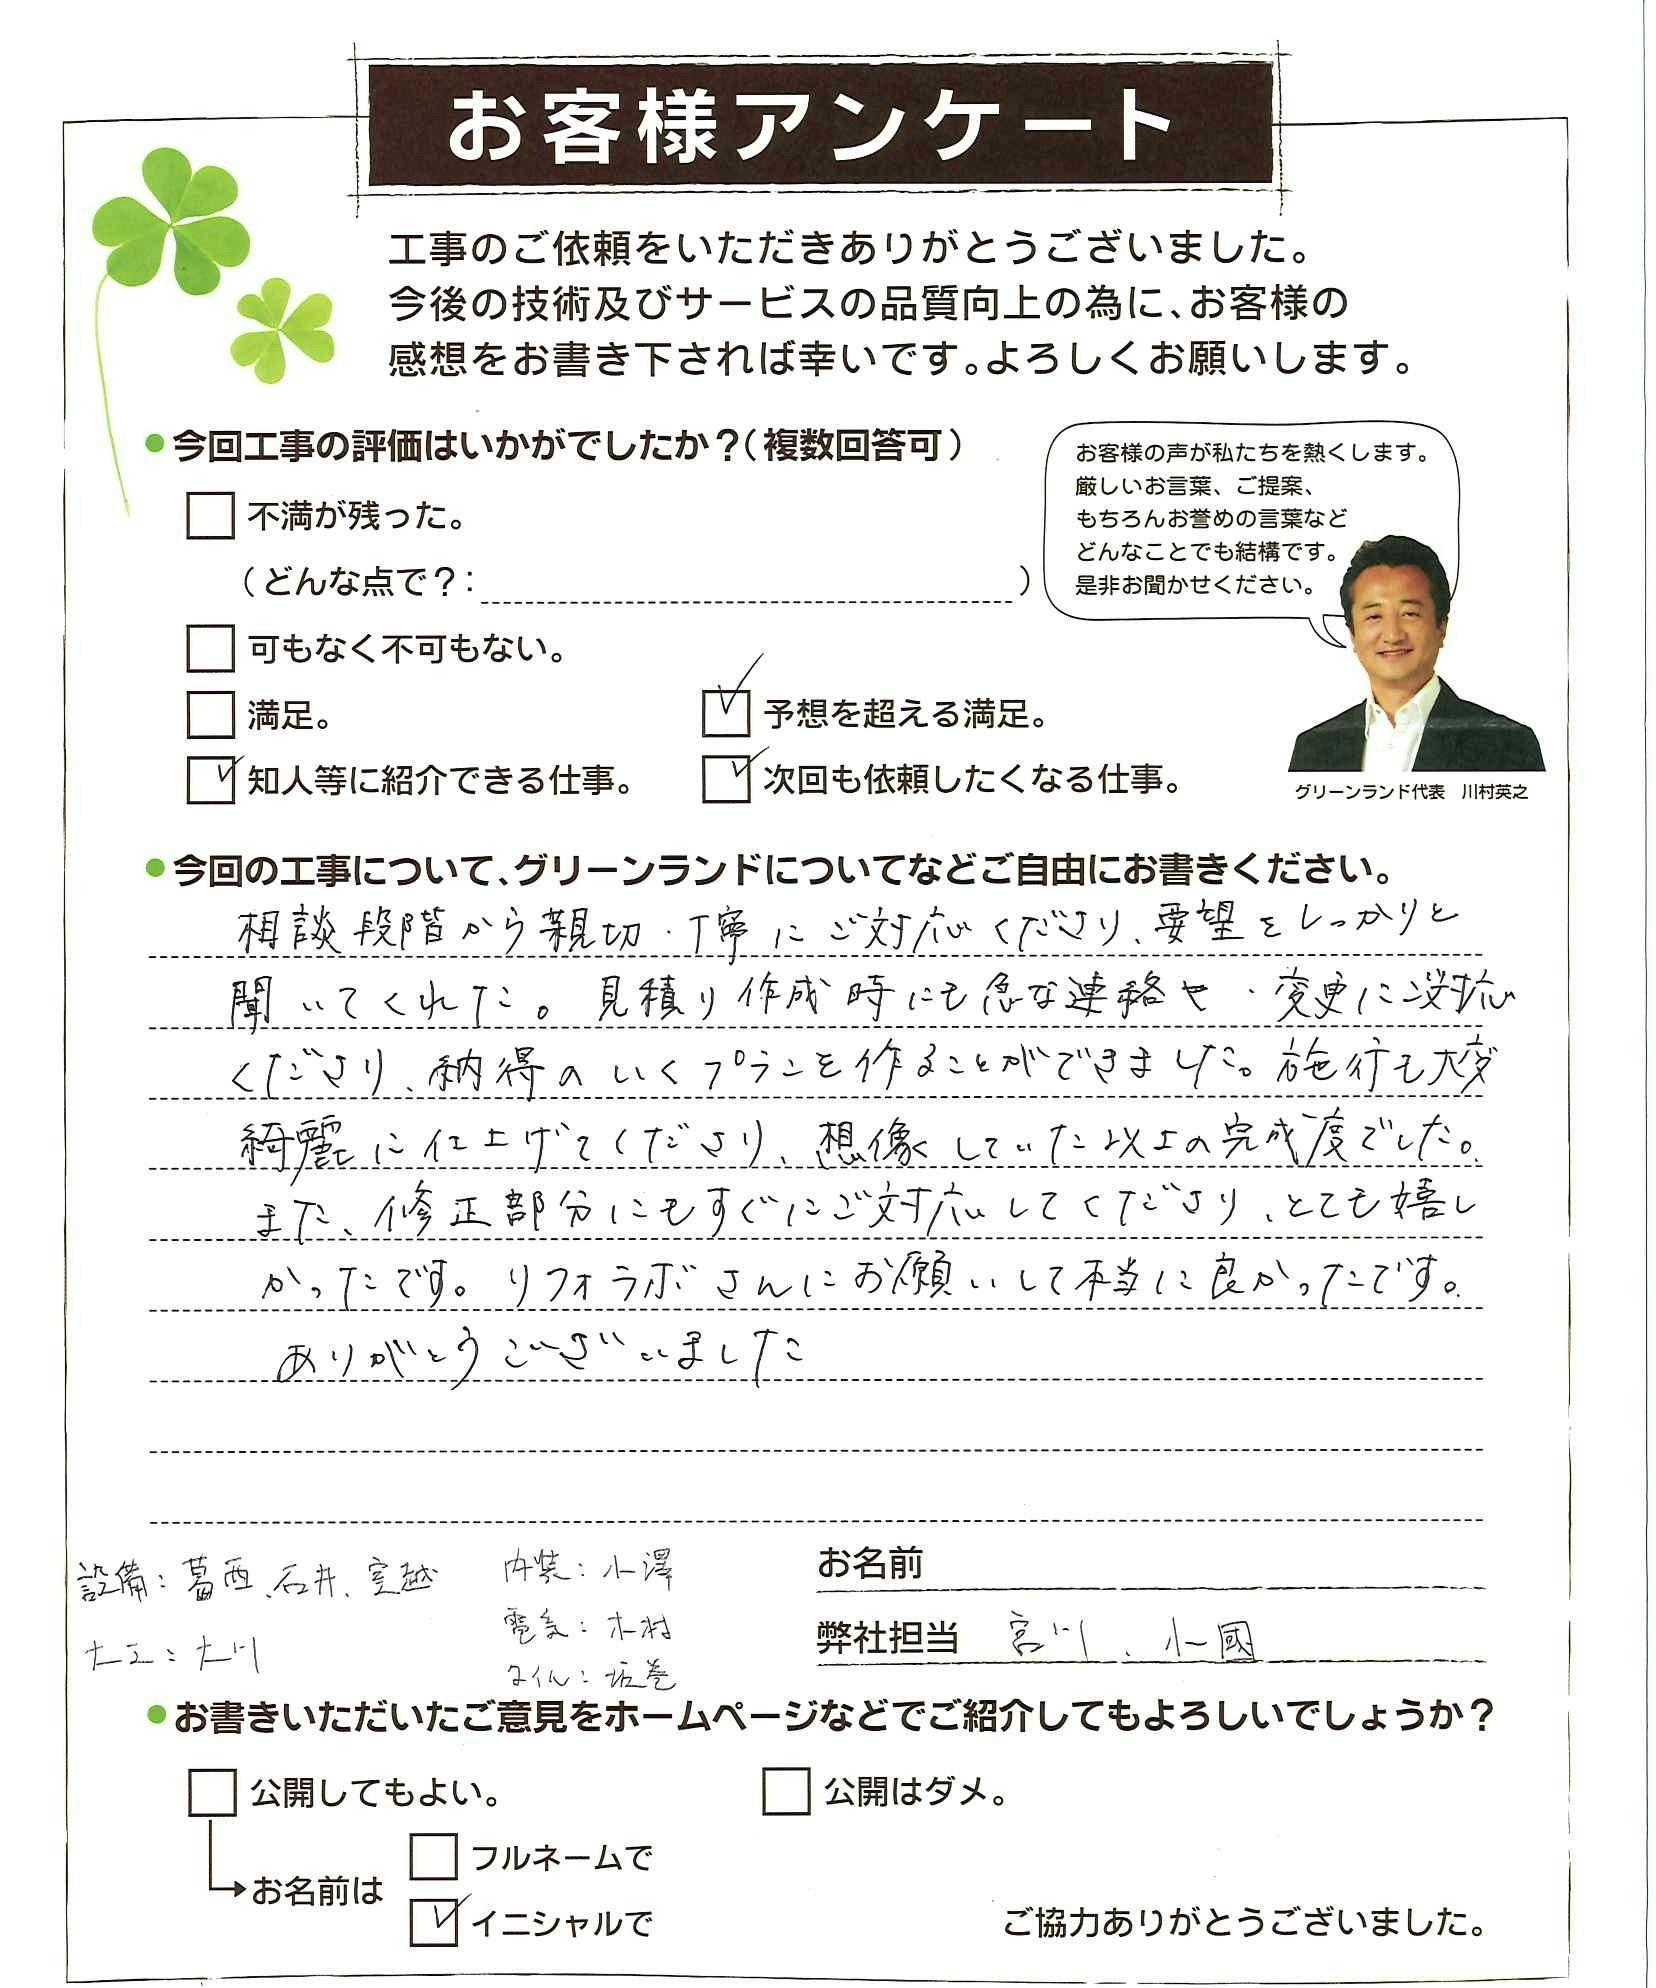 お客様アンケート
工事のご依頼をいただきありがとうございました。
今後の技術及びサービスの品質向上の為に、お客様の
感想をお書き下されば幸いです。よろしくお願いします。
●今回工事の評価はいかがでしたか？（複数回答可）
不満が残った。
（どんな点で？：　　　　）
可もなく不可もない。
満足。
予想を超える満足。
知人等に紹介できる仕事。
次回も依頼したくなる仕事。
お客様の声が私たちを熱くします。
厳しいお言葉、ご提案、
もちろんお誉めの言葉など
どんなことでも結構です。
是非お聞かせください。
グリーンランド代表　川村英之
●今回の工事について、グリーンランドについてなどご自由にお書きください。
相談段階から親切・丁寧にご対応くださり、要望をしっかりと
聞いてくれた。見積り作成時にも急な連絡や・変更にご対応
くださり、納得のいくプランを作ることができました。施行も大変
綺麗に仕上げてくださり、想像していた以上の完成度でした。
また、修正部分にもすぐにご対応してくださり、とても嬉し
かったです。リフォラボさんにお願いして本当に良かったです。
ありがとうございました
設備：葛西、石井、室越
大工：大川
内装：小澤
電気：木村
タイル：坂巻
お名前
弊社担当　宮川、小國
●お書きいただいたご意見をホームページなどでご紹介してもよろしいでしょうか？
公開してもよい。
公開はダメ。
お名前は
フルネームで
イニシャルで
ご協力ありがとうございました。